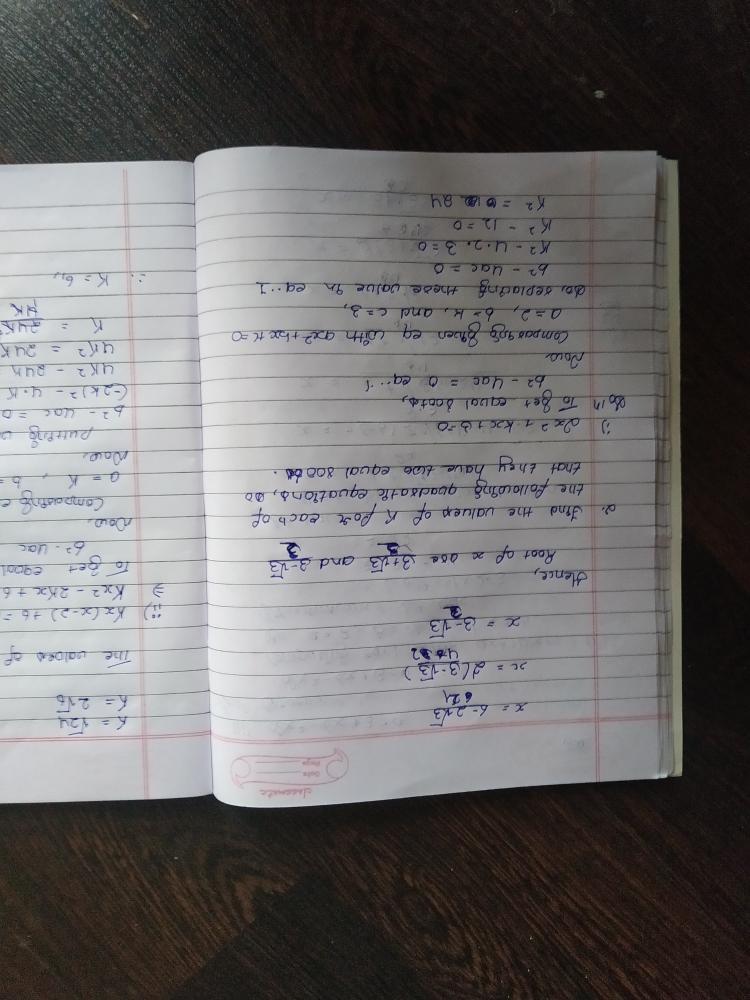 classmate
Date
Page
x = 6-2√3
x = 2(3-√3)
x = 3-√3
2
Hence,
Root of x are 3+√3 and 3-√3
2 2
2. Find the values of K for each of
the following quadratic equations, so
that they have two equal roots.
i) 2x² + kx + 3 = 0
Sol n To get equal roots,
b² - 4ac = 0 eq...1
Now
Comparing given eq with
a = 2, b = k, and c = 3,
So, replacing these value in eq..1
b² - 4ac = 0
K² - 4·2·3 = 0
K² - 12 = 0
K² = 24
K = √24
K = 2√6
The values of
ii) Kx(x-2) + 6 =
⇒ Kx² - 2Kx + 6
To get equal
b² - 4ac
Now
Comparing
a = K, b =
Now
putting
b² - 4ac = 0
(-2k)² - 4·K
4K² - 24K
4K² = 24K
K = 24K
4K
∴ K = 6,,